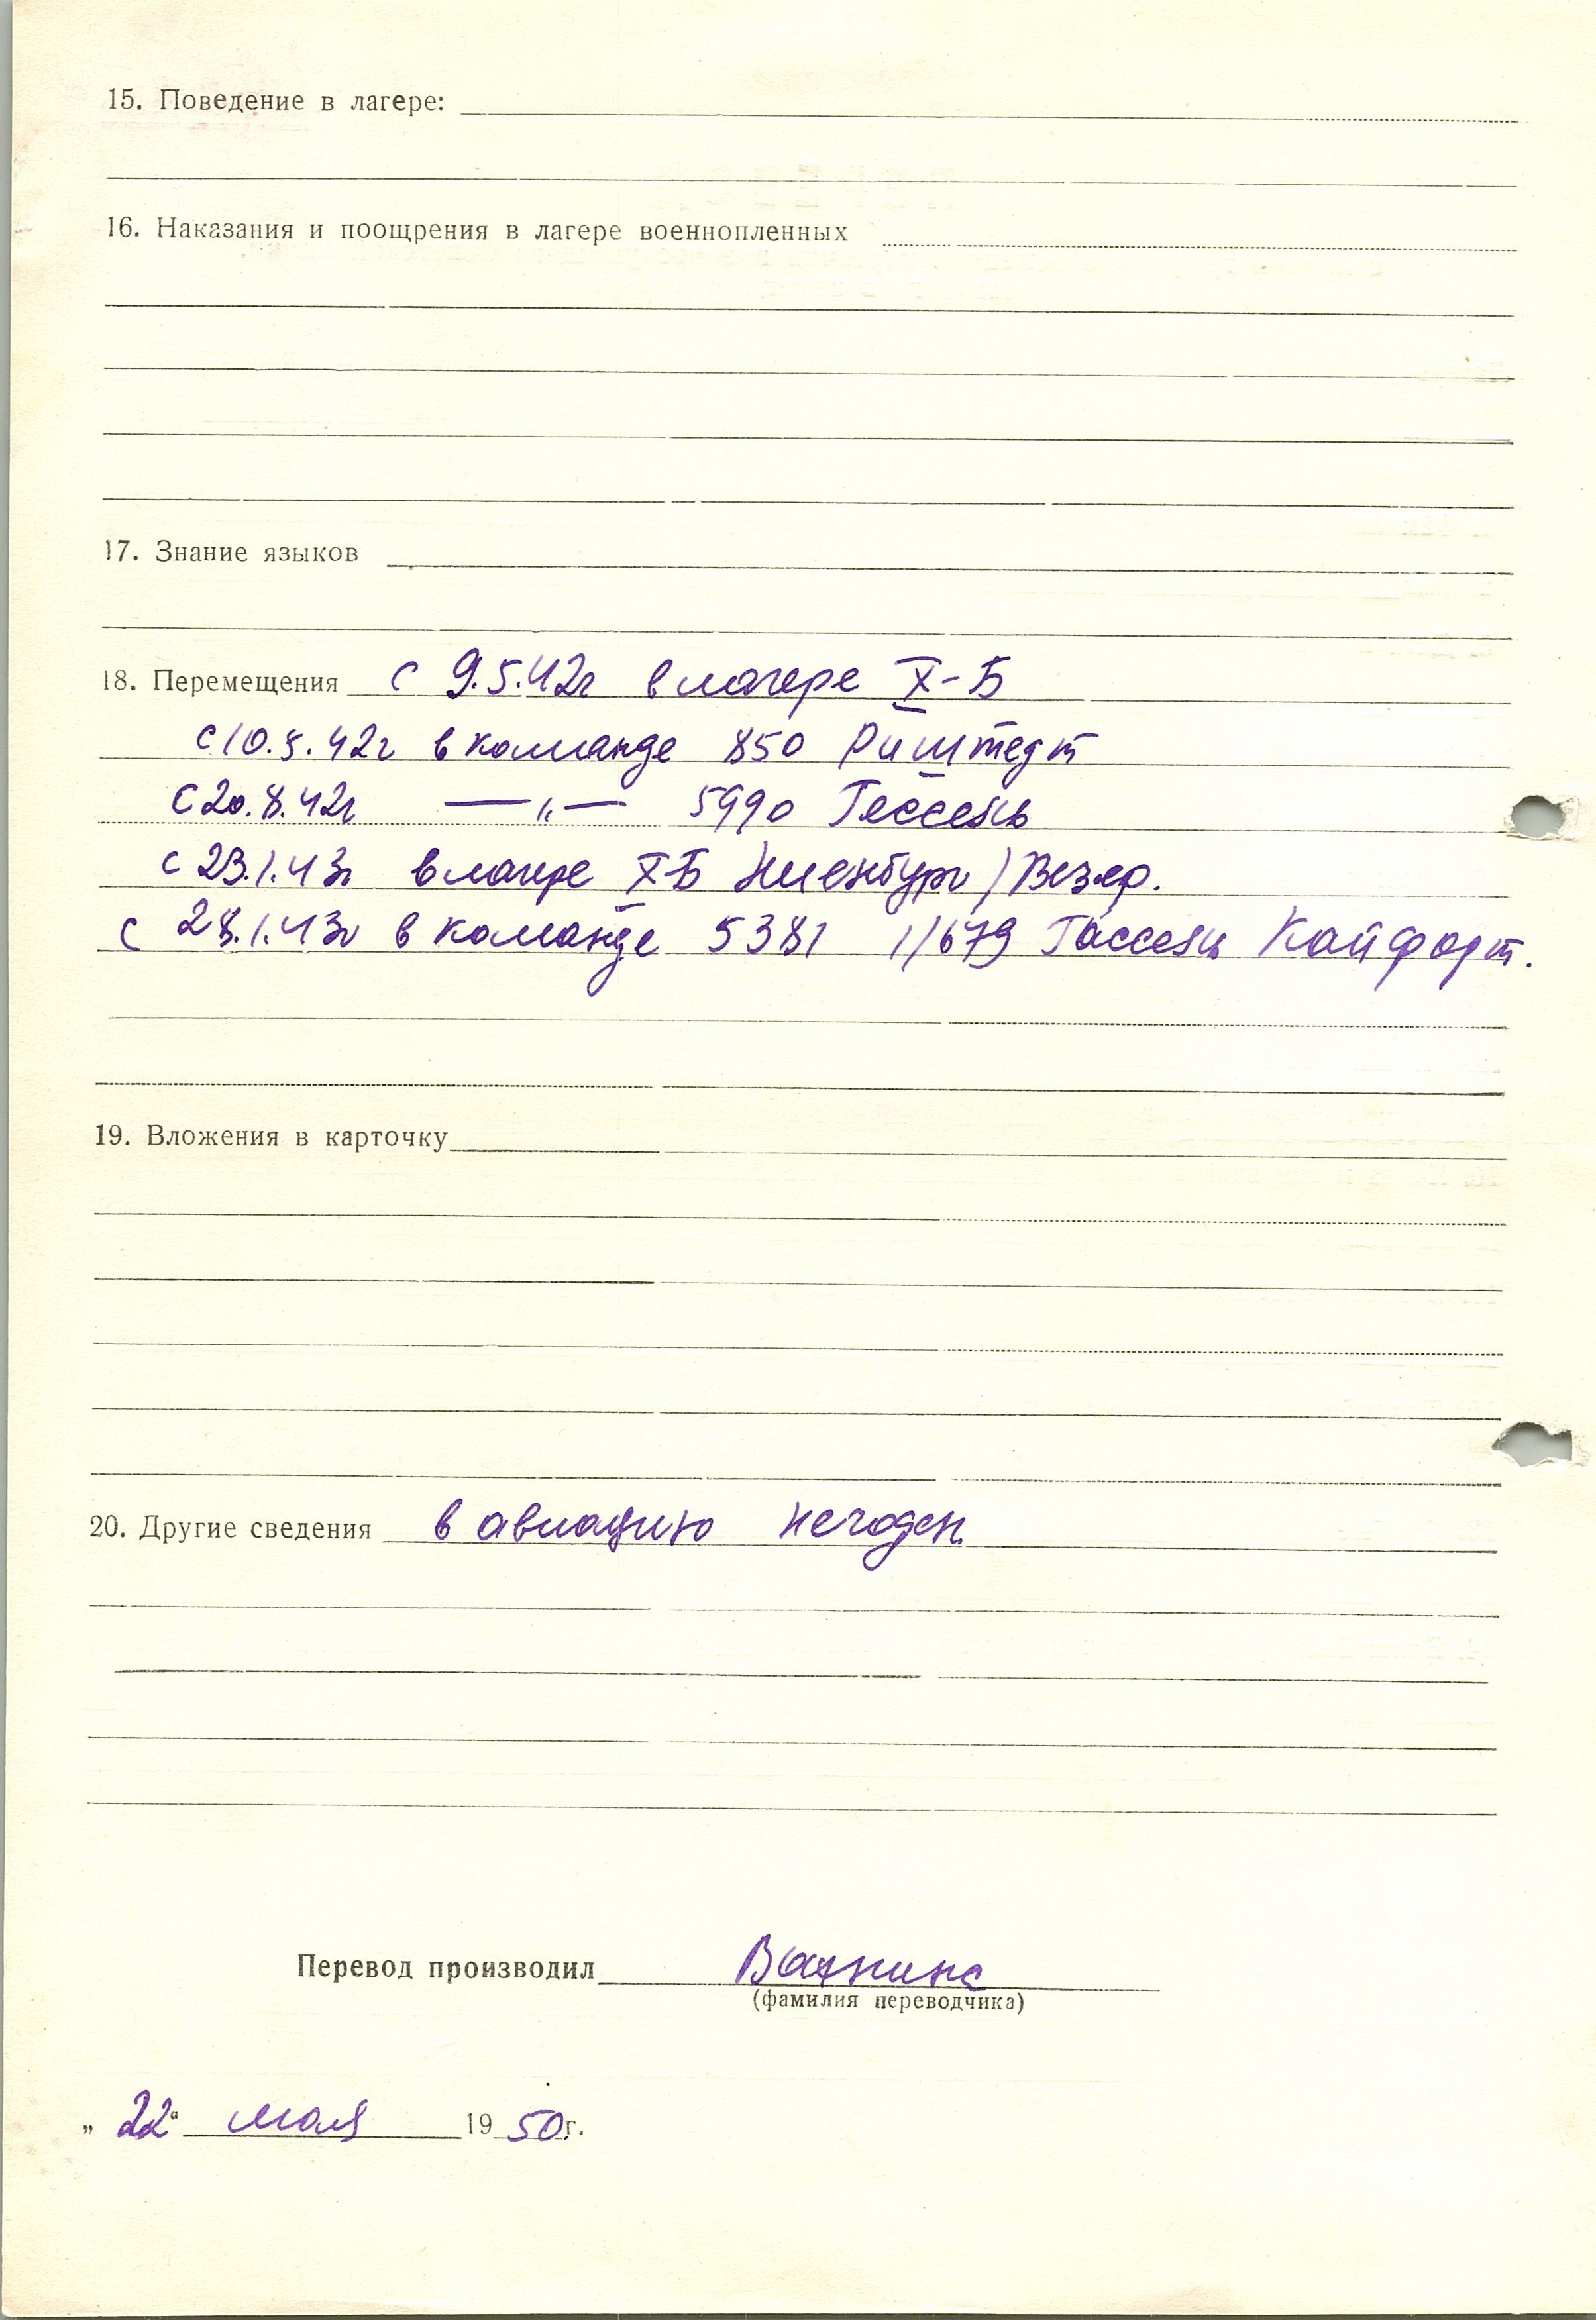 15. Поведение в лагере:
16. Наказания и поощрения в лагере военнопленных
17. Знание языков
18. Перемещения с 9.5.42г в лагере X-Б
с 10.5.42г в команде 850 Риштедт
с 20.8.42г —„— 5990 Гессень
с 23.1.43г в лагере X-Б Ниенбург / Везер.
с 28.1.43г в команде 5381 1/679 Гассень Кайфорт.
19. Вложения в карточку
20. Другие сведения в авиацию негоден
Перевод производил Вахнина
(фамилия переводчика)
„ 22 “ мая 19 50 г.